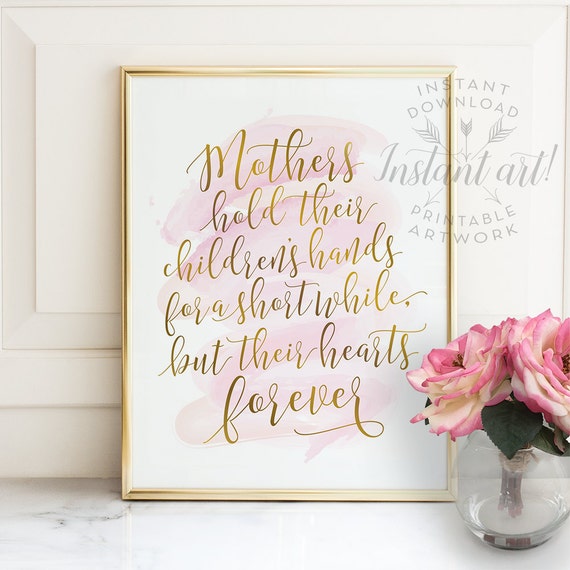 Mothers
hold their
children's hands
for a short while,
but their hearts
forever
INSTANT
DOWNLOAD
Instant art!
PRINTABLE
ARTWORK